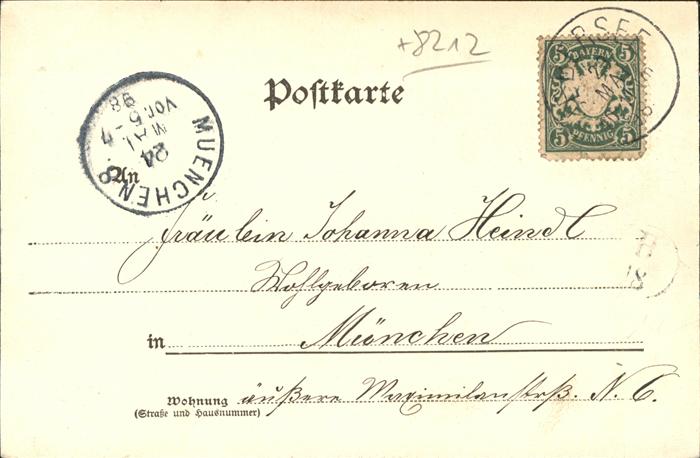 +8212
Postkarte
BAYERN
5 5
PFENNIG
5 5
MUENCHEN 8.
24
MAI.
Vor. 5-
98
An
Fräulein Johanna Heindl
Wohlgeboren
in München
Wohnung äußere Maximilianstrß. N. 6.
(Straße und Hausnummer)